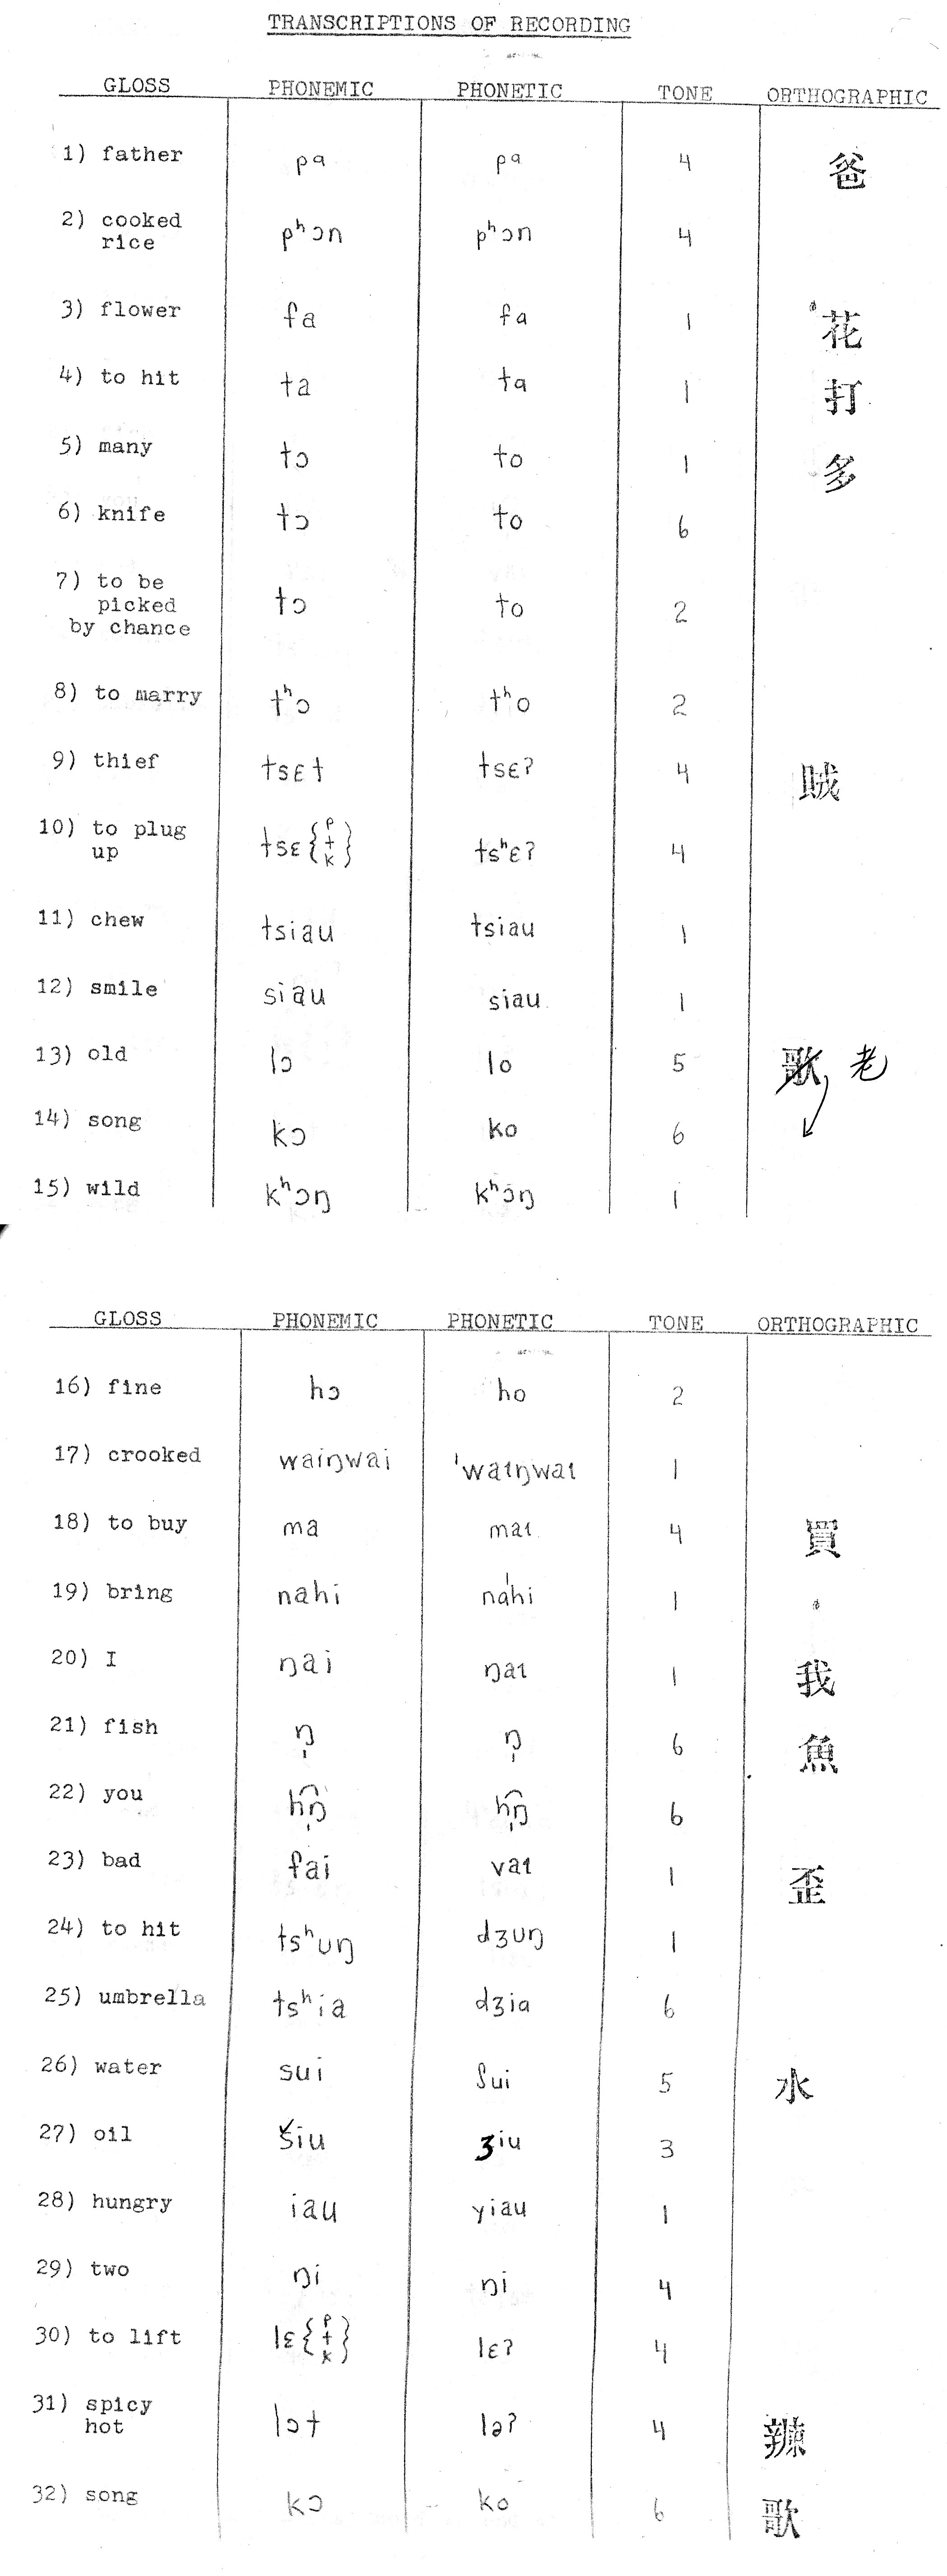 TRANSCRIPTIONS OF RECORDING
GLOSS PHONEMIC PHONETIC TONE ORTHOGRAPHIC
1) father pa pa 4 爸
2) cooked rice pʰɔn pʰɔn 4
3) flower fa fa 1 花
4) to hit ta ta 1 打
5) many tɔ to 1 多
6) knife tɔ to 6
7) to be picked by chance tɔ to 2
8) to marry tʰɔ tʰo 2
9) thief tsɛt tsɛʔ 4 賊
10) to plug up tsɛ{p t k} tsʰɛʔ 4
11) chew tsiau tsiau 1
12) smile siau siau 1
13) old lɔ lo 5 歌 老
14) song kɔ ko 6
15) wild kʰɔŋ kʰɔŋ 1
GLOSS PHONEMIC PHONETIC TONE ORTHOGRAPHIC
16) fine hɔ ho 2
17) crooked waiŋwai ˈwaɪŋwaɪ 1
18) to buy ma maɪ 4 買
19) bring nahi náhi 1
20) I ŋai ŋaɪ 1 我
21) fish ŋ̩ ŋ̩ 6 魚
22) you h͡ŋ̩ h͡ŋ̩ 6
23) bad fai vaɪ 1 歪
24) to hit tsʰuŋ dʒuŋ 1
25) umbrella tsʰia dʒia 6
26) water sui ʃui 5 水
27) oil šiu ʒiu 3
28) hungry iau yiau 1
29) two ŋi ŋi 4
30) to lift lɛ{p t k} lɛʔ 4
31) spicy hot lɔt ləʔ 4 辣
32) song kɔ ko 6 歌